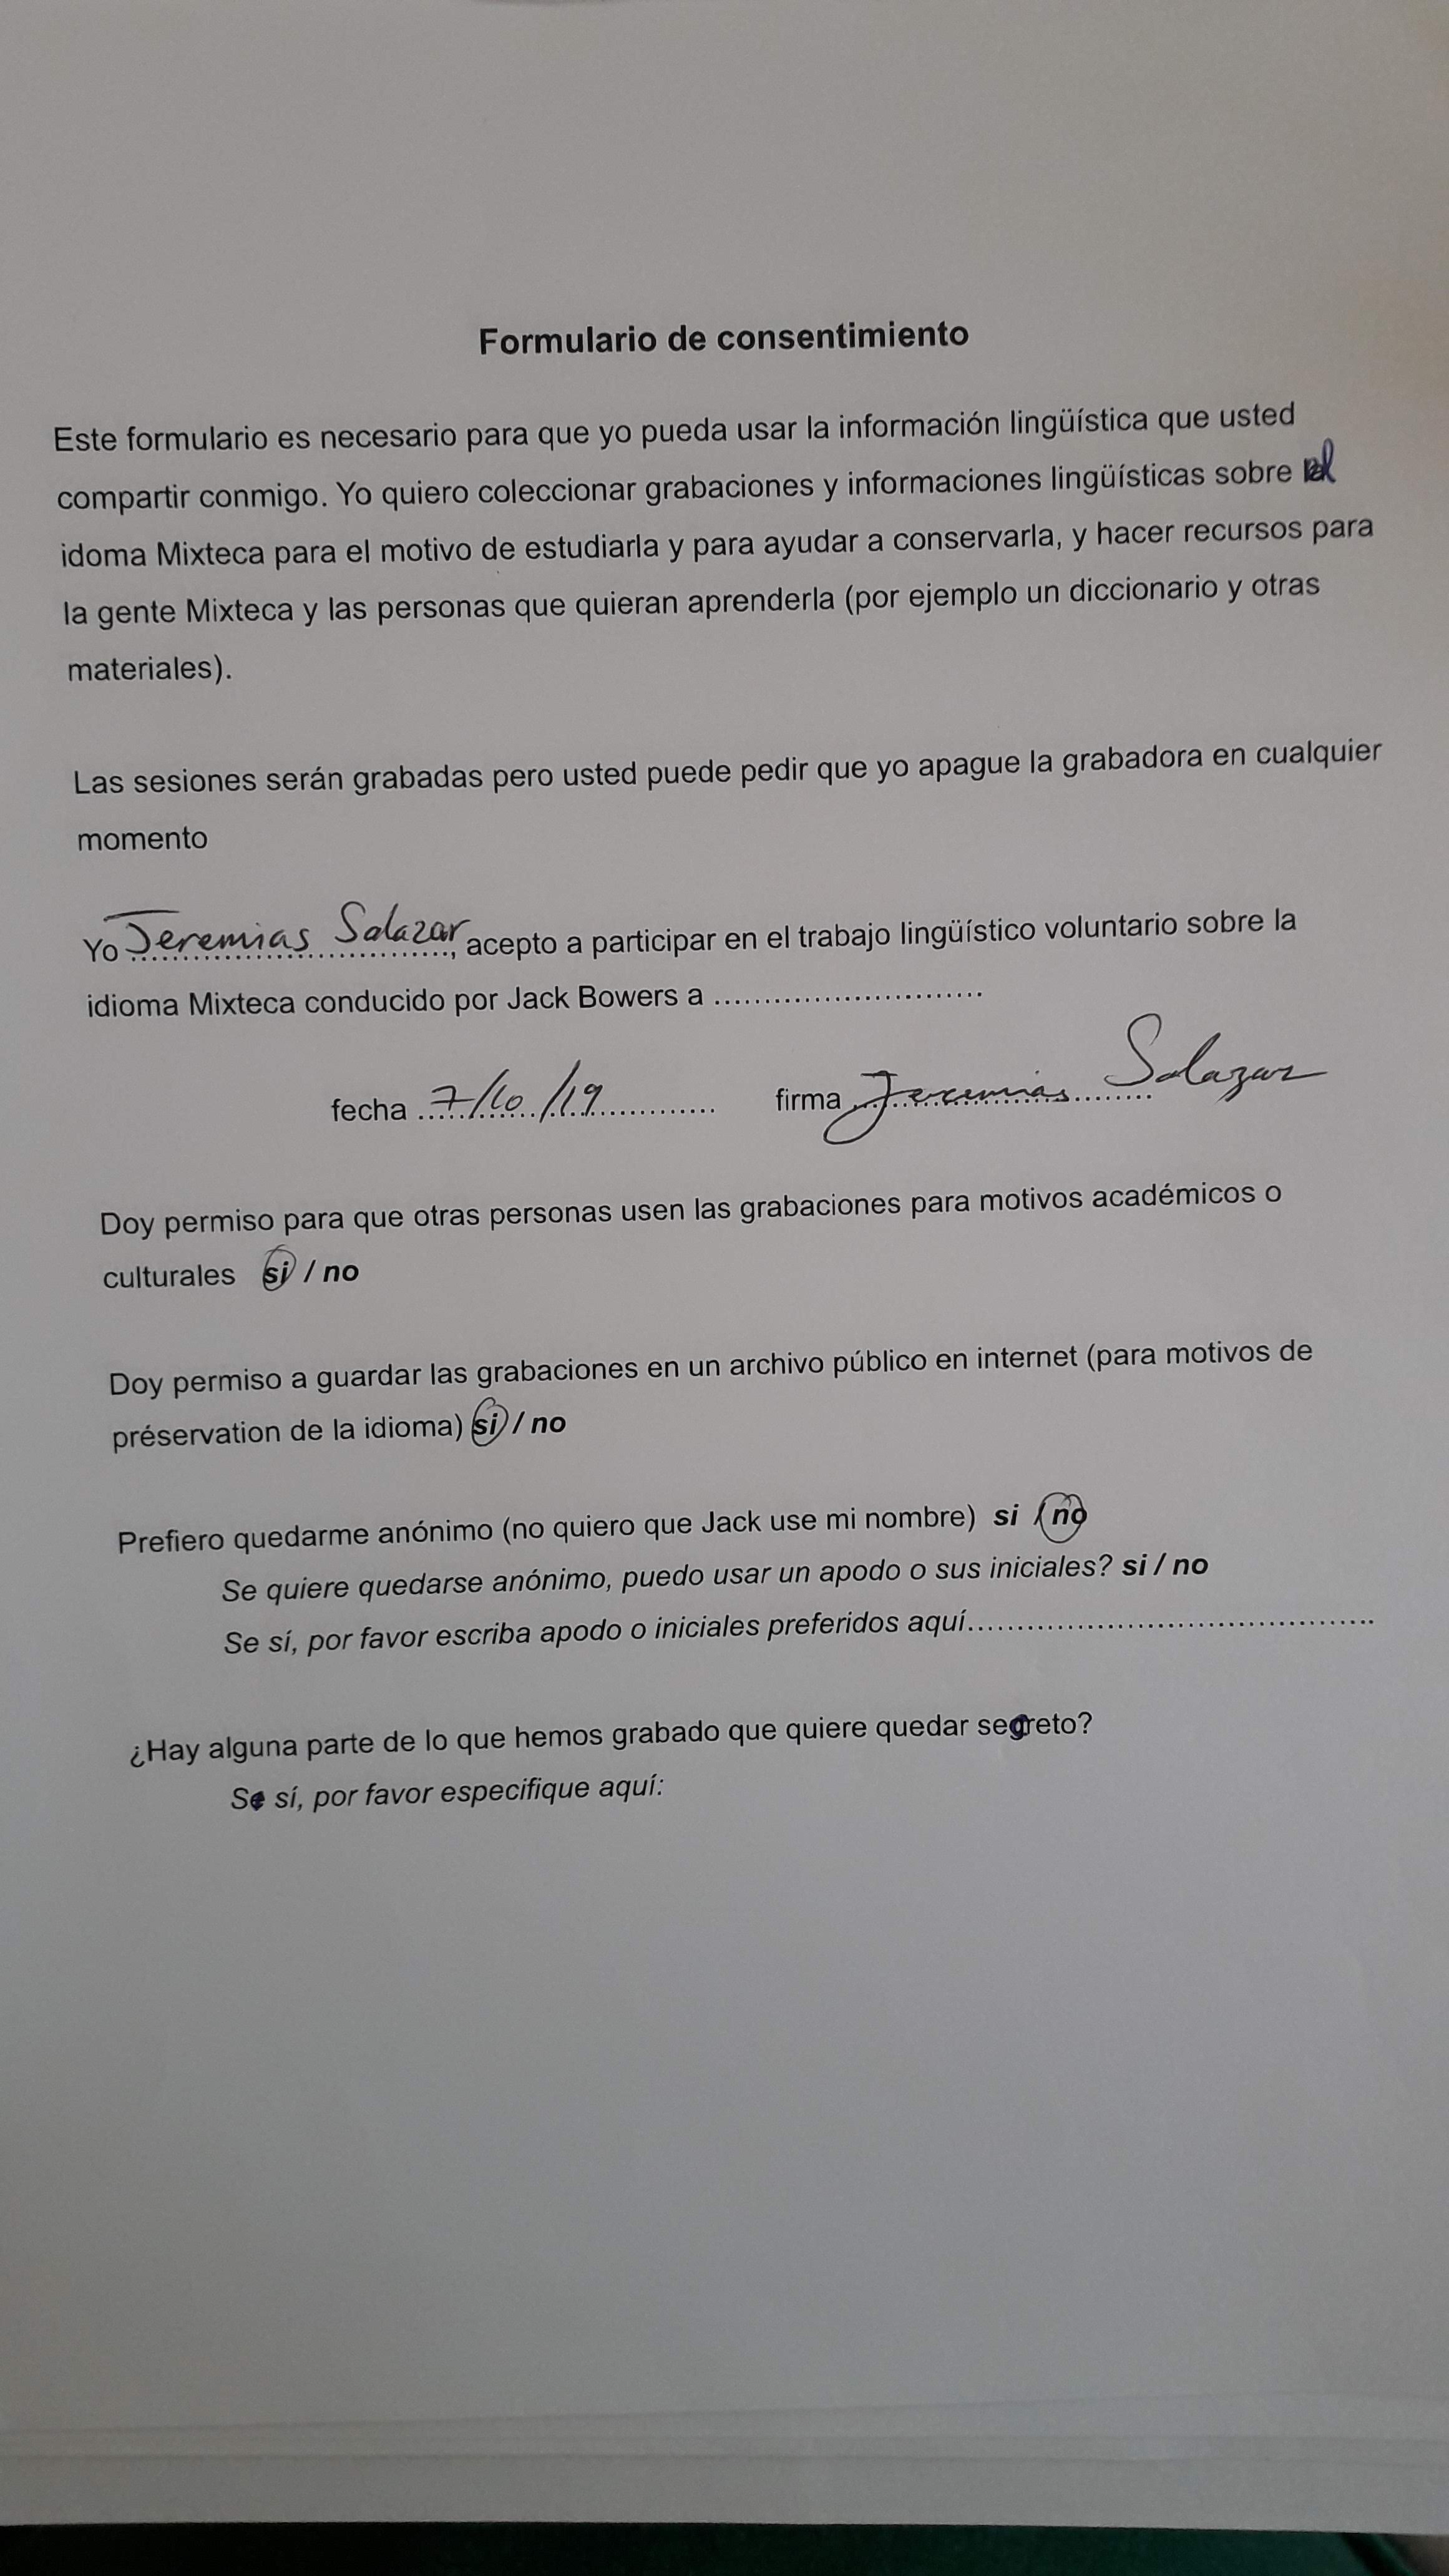 Formulario de consentimiento
Este formulario es necesario para que yo pueda usar la información lingüística que usted
compartir conmigo. Yo quiero coleccionar grabaciones y informaciones lingüísticas sobre el
idoma Mixteca para el motivo de estudiarla y para ayudar a conservarla, y hacer recursos para
la gente Mixteca y las personas que quieran aprenderla (por ejemplo un diccionario y otras
materiales).
Las sesiones serán grabadas pero usted puede pedir que yo apague la grabadora en cualquier
momento
Yo Jeremias Salazar, acepto a participar en el trabajo lingüístico voluntario sobre la
idioma Mixteca conducido por Jack Bowers a ...........................
fecha 7/10/19 firma Jeremias Salazar
Doy permiso para que otras personas usen las grabaciones para motivos académicos o
culturales si / no
Doy permiso a guardar las grabaciones en un archivo público en internet (para motivos de
préservation de la idioma) si / no
Prefiero quedarme anónimo (no quiero que Jack use mi nombre) si / no
Se quiere quedarse anónimo, puedo usar un apodo o sus iniciales? si / no
Se sí, por favor escriba apodo o iniciales preferidos aquí.........................................
¿Hay alguna parte de lo que hemos grabado que quiere quedar segreto?
Se sí, por favor especifique aquí: